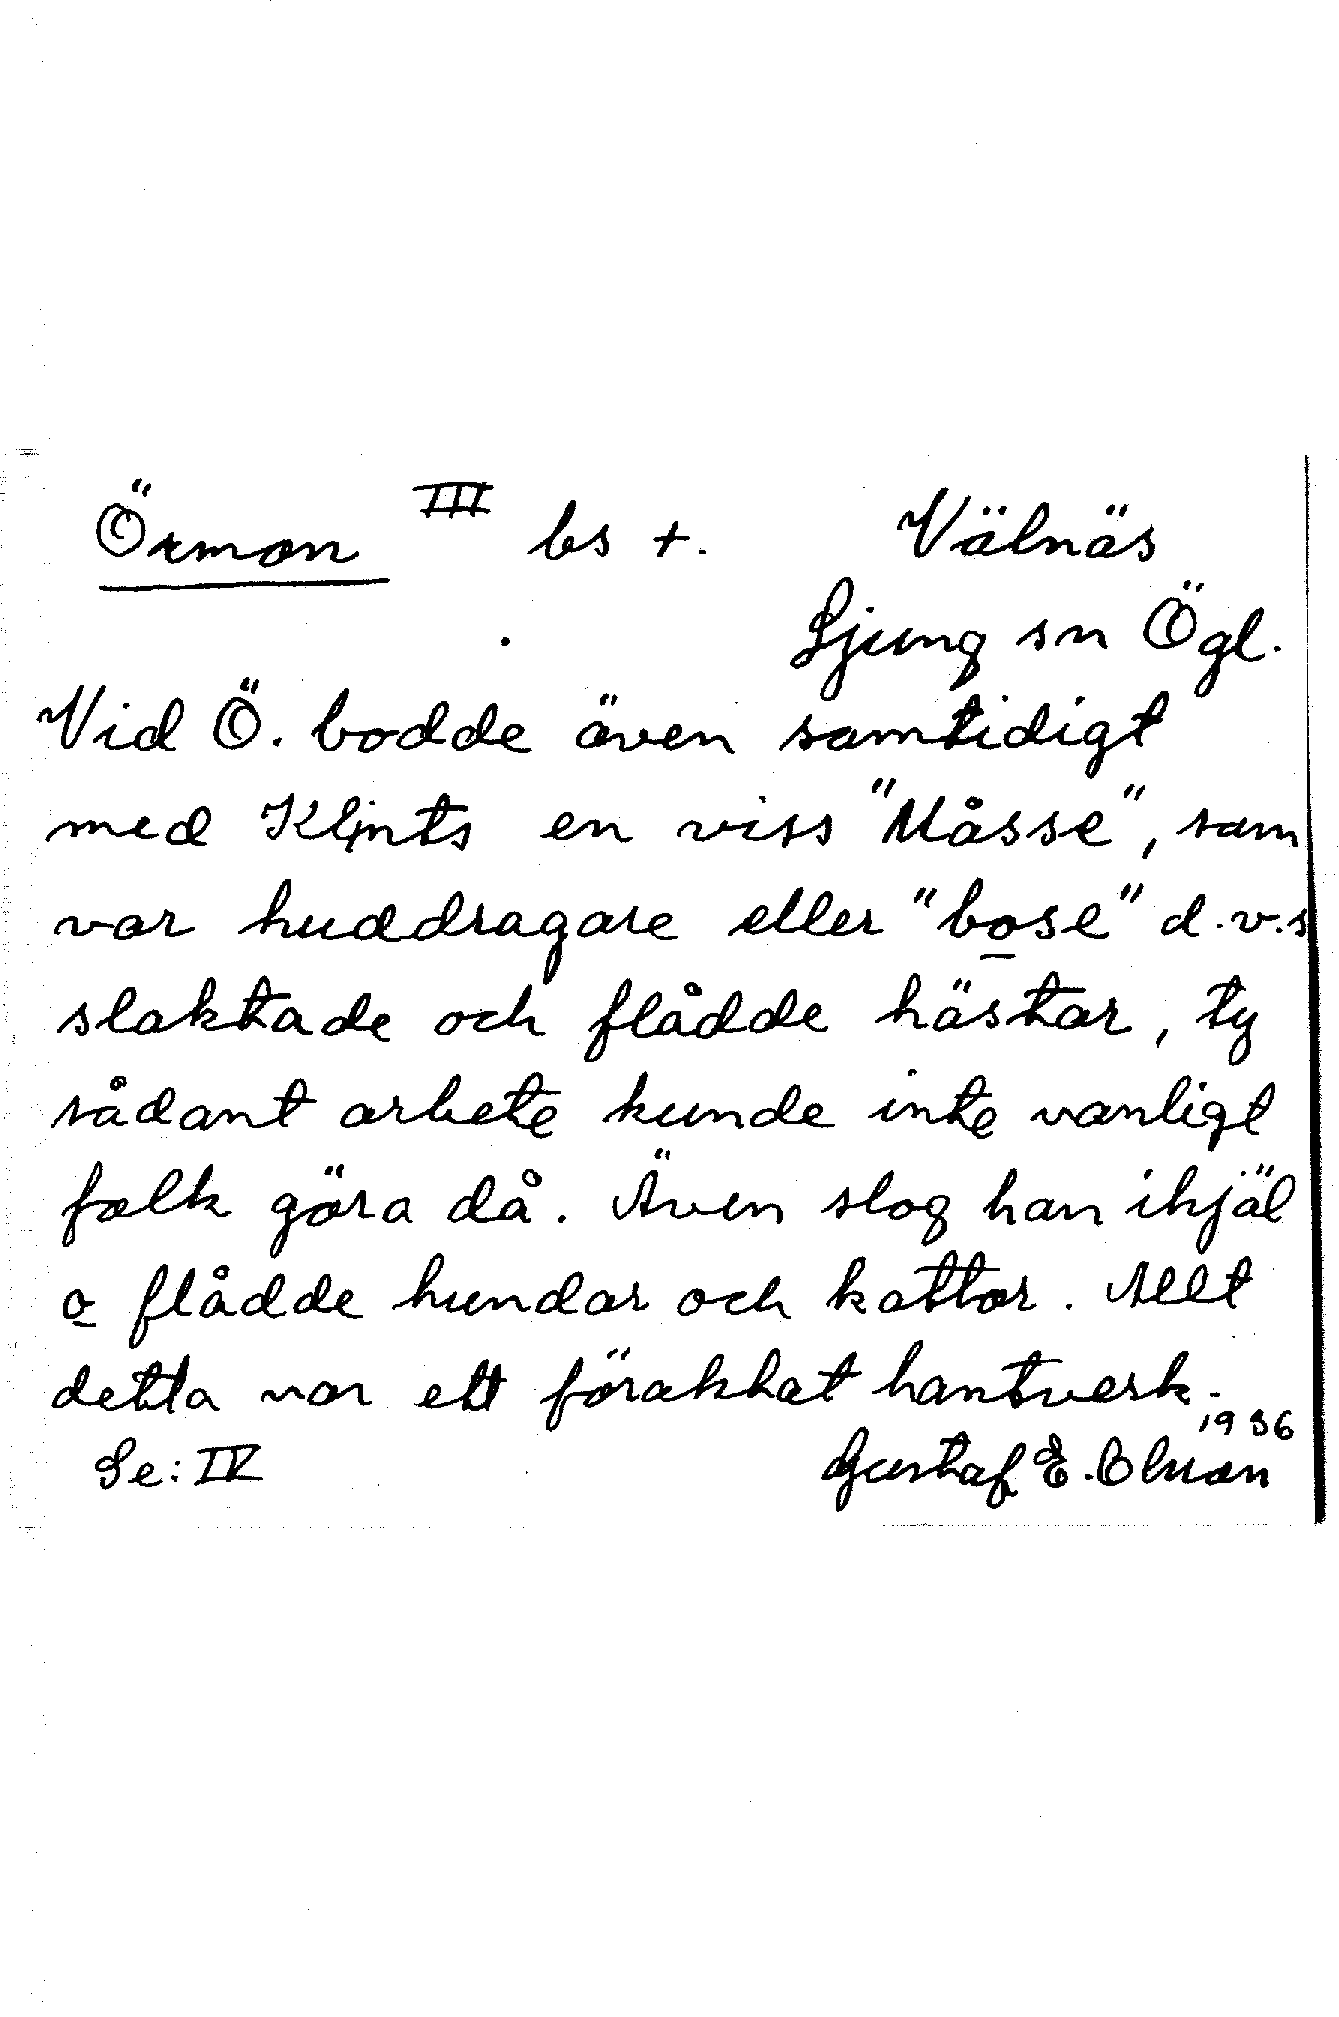 Örmon III bs +. Välnäs
Ljung sn Ögl.
Vid Ö. bodde även samtidigt
med Klints en viss "Måsse", som
var huddragare eller "bose" d.v.s
slaktade och flådde hästar, ty
sådant arbete kunde inte vanligt
folk göra då. Även slog han ihjäl
o flådde hundar och kattor. Allt
detta var ett föraktat hantverk.
1936
Se: IV Gustaf E.